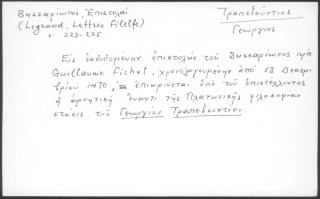 Βησσαρίωνος, Ἐπιστολαί
(Legrand, Lettres Filelfe)
σ. 223-225
Τραπεζούντιος
Γεώργιος
Εἰς ἐκδιδομένην ἐπιστολήν τοῦ Βησσαρίωνος πρὸς
Guillaume Fichet, χρονολογουμένην ἀπό 13 Δεκεμ-
βρίου 1470, ἐπικρίνεται ὑπό τοῦ ἐπιστέλλοντος
ἡ ἀρνητική ἔναντι τῆς Πλατωνικῆς φιλοσοφίας
στάσις τοῦ Γεωργίου Τραπεζουντίου.